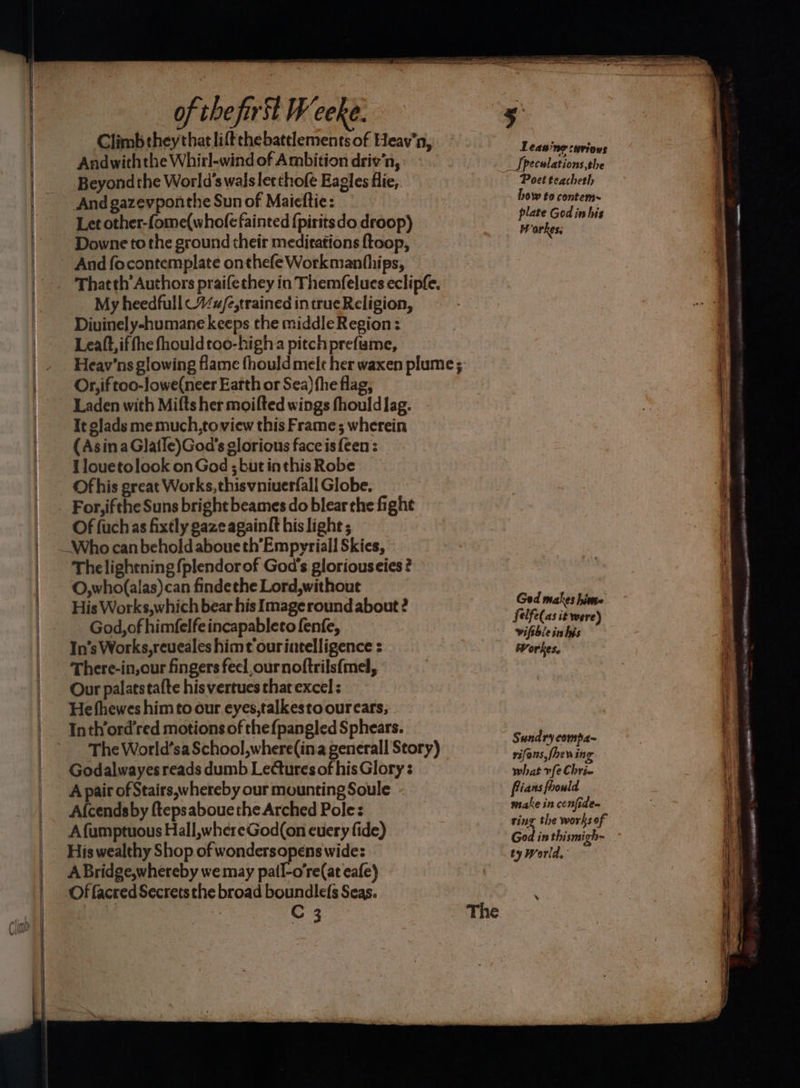 of the first Weeke. 5
Climb they that lift the battlements of Heav'n,
And with the Whirl-wind of Ambition driv'n,
Beyond the World's wals let those Eagles flie,
And gaze vpon the Sun of Maiestie:
Let other-some (whose fainted spirits do droop)
Downe to the ground their meditations stoop,
And so contemplate on these Workmanships,
That th' Authors praise they in Themselues eclipse.
My heedfull Muse, trained in true Religion,
Diuinely-humane keeps the middle Region:
Least, if she should too-high a pitch presume,
Heav'ns glowing flame should melt her waxen plume;
Or, if too-lowe (neer Earth or Sea) she flag,
Laden with Mists her moisted wings should lag.
It glads me much, to view this Frame; wherein
(As in a Glasse) God's glorious face is seen:
I loue to look on God; but in this Robe
Of his great Works, this vniuersall Globe.
For, if the Suns bright beames do blear the sight
Of such as fixtly gaze against his light;
Who can behold aboue th' Empyriall Skies,
The lightning splendor of God's glorious eies?
O, who (alas) can finde the Lord, without
His Works, which bear his Image round about?
God, of himselfe incapable to sense,
In's Works, reueales him t' our intelligence:
There-in, our fingers feel, our nostrils smel,
Our palats taste his vertues that excel:
He shewes him to our eyes, talkes to our ears,
In th' ord'red motions of the spangled Sphears.
The World's a School, where (in a generall Story)
God alwayes reads dumb Lectures of his Glory:
A pair of Stairs, whereby our mounting Soule
Ascends by steps aboue the Arched Pole:
A sumptuous Hall, where God (on euery side)
His wealthy Shop of wonders opens wide:
A Bridge, whereby we may pass-o're (at ease)
Of sacred Secrets the broad boundless Seas.
C 3 The
Leauing curious
speculations, the
Poet teacheth
how to contem-
plate God in his
Workes.
God makes him-
selfe (as it were)
visible in his
Workes.
Sundry compa-
risons, shewing
what vse Chri-
stians should
make in conside-
ring the works of
God in this migh-
ty World.
Climb